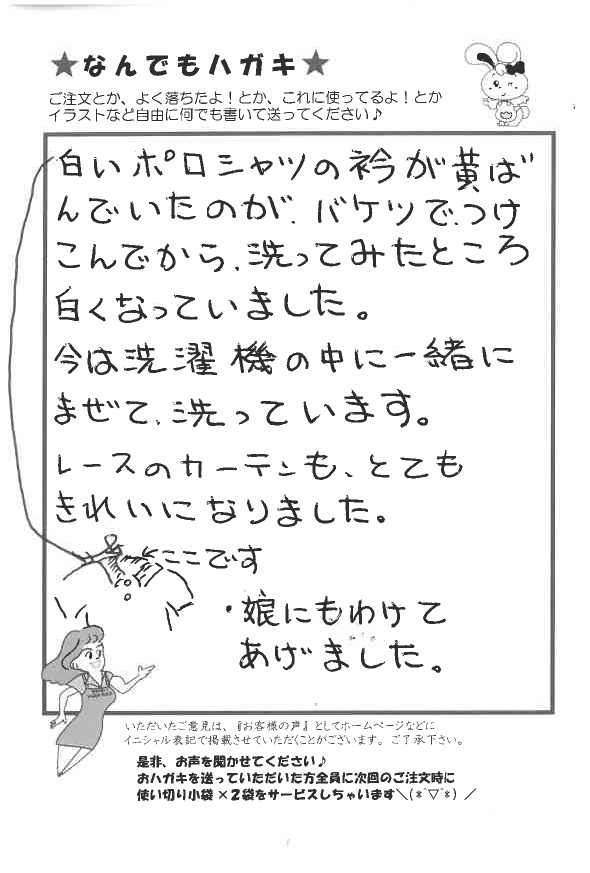 ★なんでもハガキ★
ご注文とか、よく落ちたよ！とか、これに使ってるよ！とか
イラストなど自由に何でも書いて送ってください♪
白いポロシャツの衿が黄ば
んでいたのが、バケツで、つけ
こんでから、洗ってみたところ
白くなっていました。
今は洗濯機の中に一緒に
まぜて、洗っています。
レースのカーテンも、とても
きれいになりました。
ここです
・娘にもわけて
あげました。
いただいたご意見は、『お客様の声』としてホームページなどに
イニシャル表記で掲載させていただくことがございます。ご了承下さい。
是非、お声を聞かせてください♪
おハガキを送っていただいた方全員に次回のご注文時に
使い切り小袋×2袋をサービスしちゃいます＼(*ﾟ▽ﾟ*)／